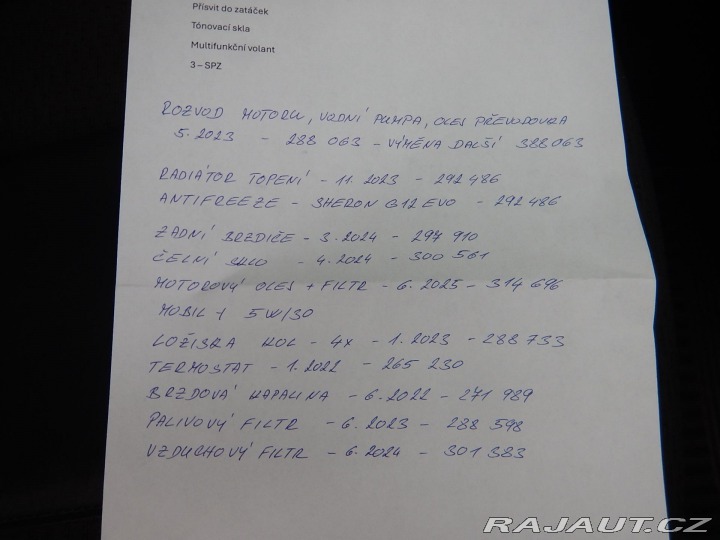 Přísvit do zatáček
Tónovací skla
Multifunkční volant
3 – SPZ
ROZVOD MOTORU, VODNÍ PUMPA, OLEJ PŘEVODOVKA
5.2023 - 288 063 - VÝMĚNA DALŠÍ 388 063
RADIÁTOR TOPENÍ - 11.2023 - 292 486
ANTIFREEZE - SHERON G12 EVO - 292 486
ZADNÍ BRZDIČE - 3.2024 - 297 910
ČELNÍ SKLO - 4.2024 - 300 561
MOTOROVÝ OLEJ + FILTR - 6.2025 - 314 696
MOBIL 1 5W/30
LOŽISKA KOL - 4x - 1.2023 - 288 733
TERMOSTAT - 1.2022 - 265 230
BRZDOVÁ KAPALINA - 6.2022 - 271 989
PALIVOVÝ FILTR - 6.2023 - 288 598
VZDUCHOVÝ FILTR - 6.2024 - 301 383
RAJAUT.CZ